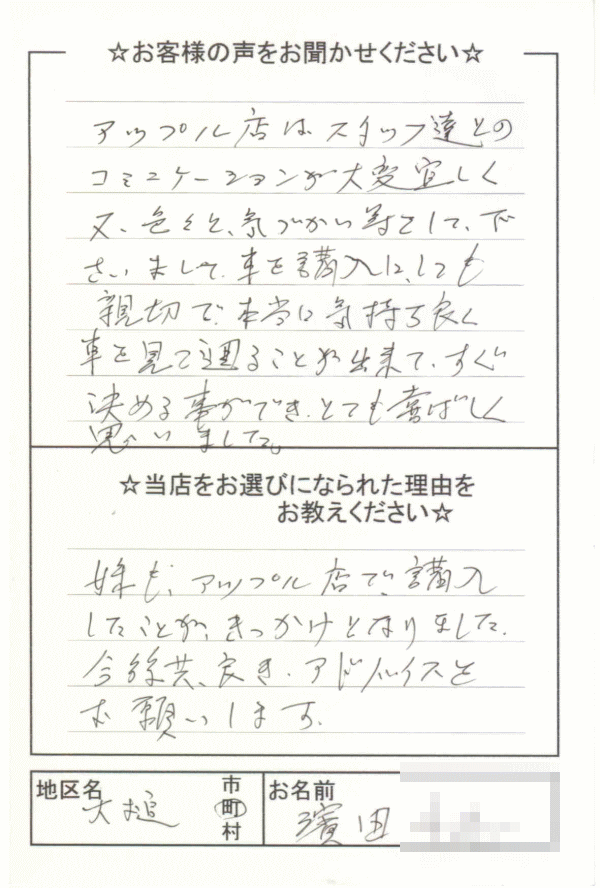 ☆お客様の声をお聞かせください☆
アップル店は、スタッフ達との
コミュニケーションが大変宜しく
又、色々と、気づかい等として、下
さいまして、車を講入に、しても
親切で、本当に気持ち良く
車を見て廻ることが出来て、すぐ
決める事ができ、とても喜ばしく
思いました。
☆当店をお選びになられた理由を
お教えください☆
妹も、アップル店で、講入
したことが、きっかけとなりました。
今後共、良き、アドバイスを
お願いします。
地区名 大槌 市町村
お名前 濱田